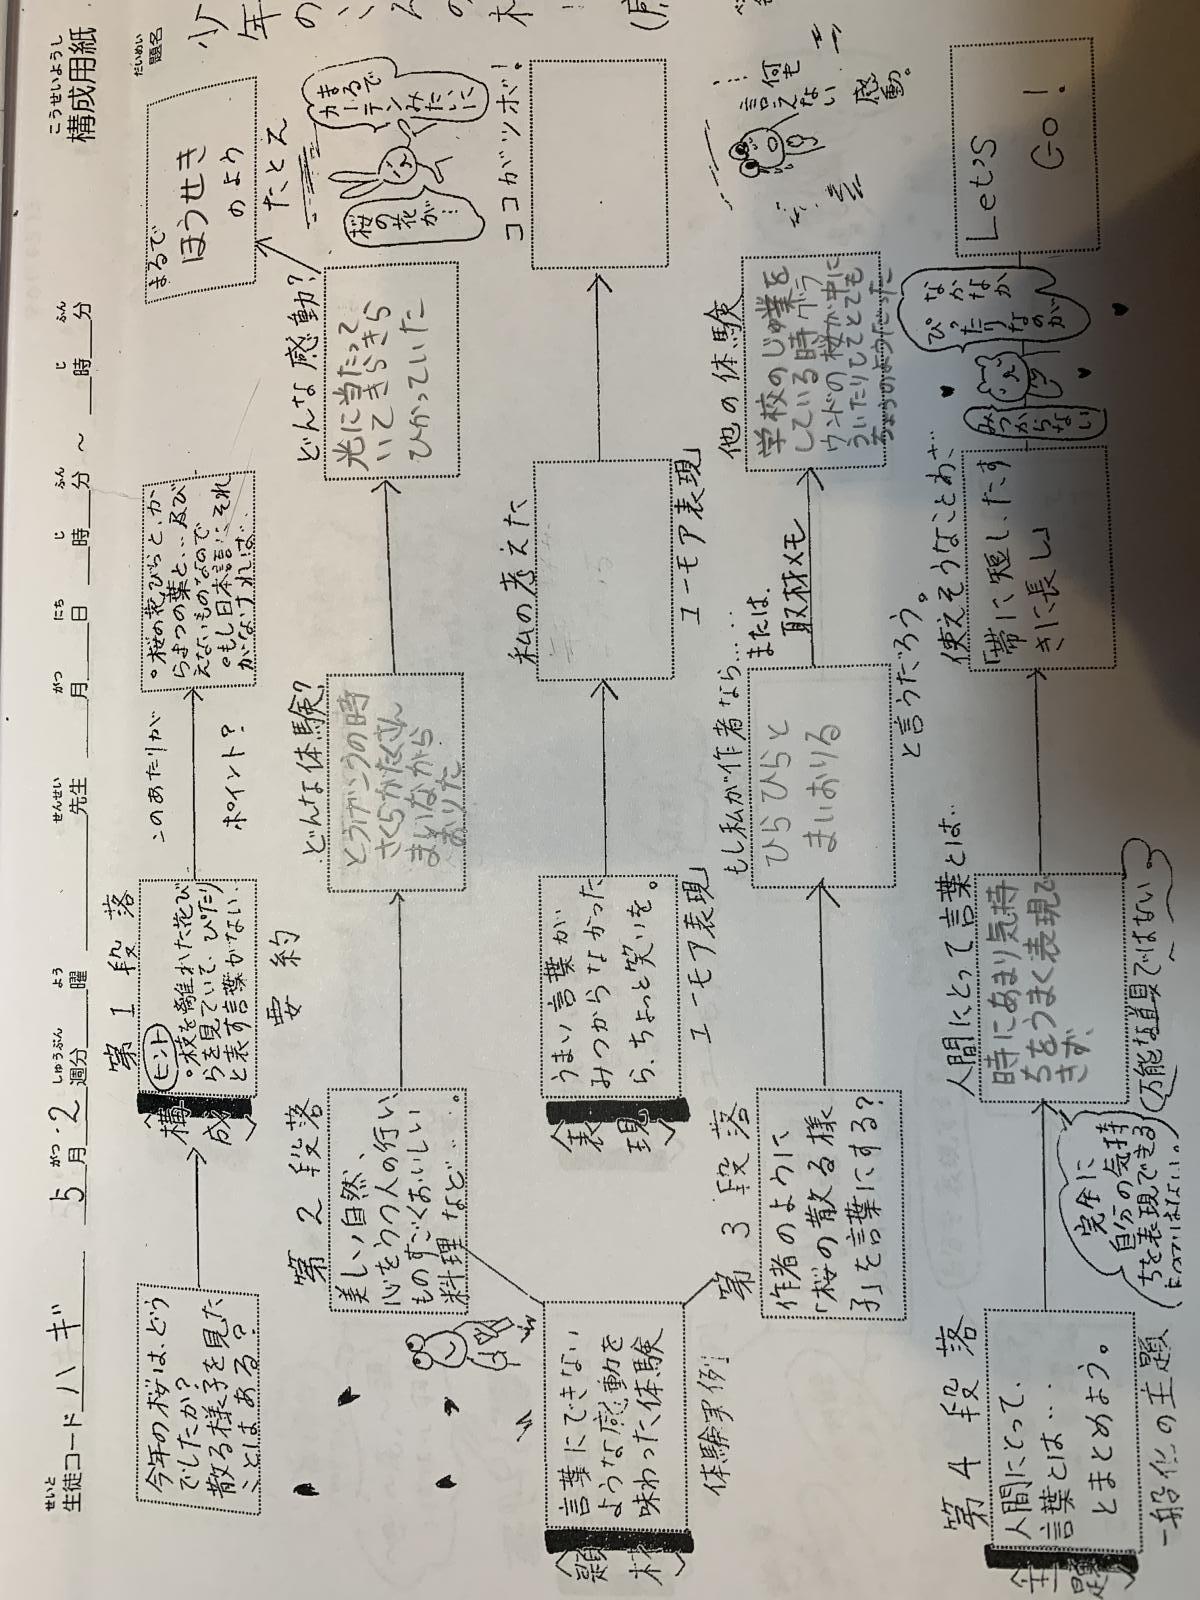 こうせいようし
構成用紙
せいと
生徒コード ハギ
がつ しゅうぶん よう
5月.2週分 曜
せんせい
先生
がつ にち じ ふん じ ふん
月 日 時 分 ~ 時 分
だいめい
題名
少年の
第1段落
今年の桜は、どう
でしたか?
散る様子を見た
ことはある?
〈構成〉
ヒント
。枝を離れた花び
らを見ていて、ぴたり
と表す言葉がない。
要約
このあたりが
ポイント?
。桜の花びらと、か
らまつの葉と…及び
えないものなので
。もし日本語にそれ
がなければ…
まるで
ほうせき
のよう
たとえ
第2段落
美しい自然、
心をうつ人の行い、
ものすごくおいしい
料理など…。
どんな体験?
とうげこうの時
さくらがたくさん
まいながら
おりた
どんな感動?
光に当たって
いてきらきら
ひかっていた
桜の花が…
まるで
カーテン
みたいに
〈題材〉
言葉にできない
ような感動を
味わった体験
体験実例
〈表現〉
うまい言葉が
みつからなかった
ら、ちょっと笑いを。
ユーモア表現
私の考えた
ユーモア表現
ココがツボ!
第3段落
作者のように
「桜の散る様
子」を言葉にする?
もし私が作者なら…
ひらひらと
まいおりる
と言うだろう。
または、
取材メモ
他の体験
学校のじゅ業を
している時グラ
ウンドの桜が中に
ういたりしてとても
ちょうのようだった
何も
言えない
感動。
第4段落
〈主題〉
人間にとって、
言葉とは…
とまとめよう。
一般化の主題
完全に
自分の気持
ちを表現できる
わけではない。
人間にとって言葉とは…
時にあまり気持
ちをうまく表現で
きず、
万能な道具ではない。
使えそうなことわざ…
「帯に短し、たす
きに長し」
なかなか
ぴったりなのが
みつからない
Let's
Go!